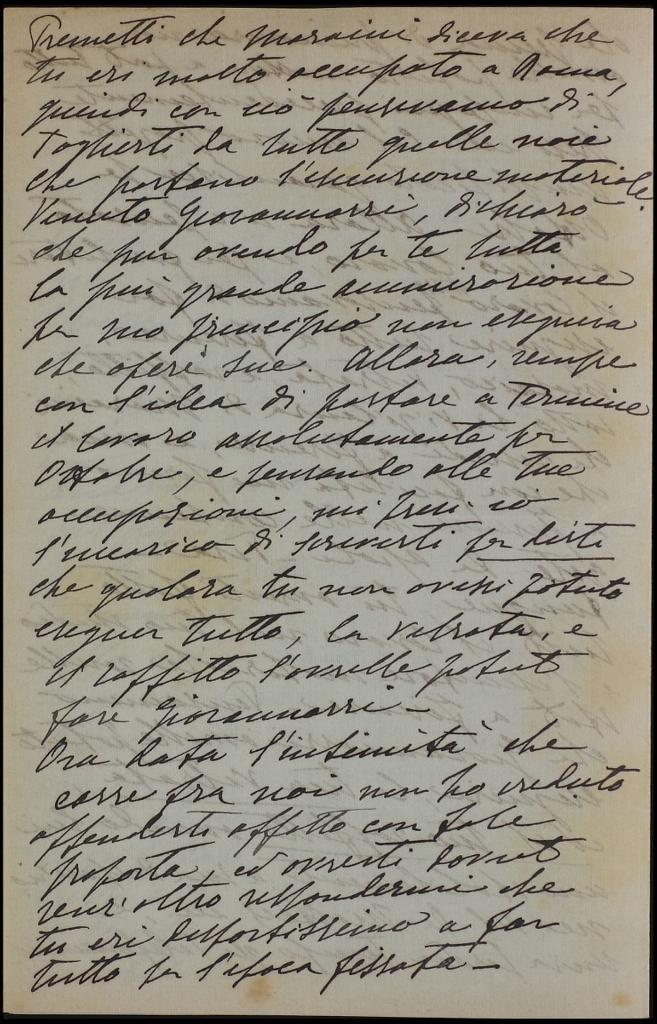 Premetti che Maraini diceva che
tu eri molto occupato a Roma,
quindi con ciò pensavamo di
toglierti da tutte quelle noie
che portano l'esecuzione materiale.
Venuto Giovannozzi, dichiarò
che pur avendo per te tutta
la più grande ammirazione
per suo principio non eseguiva
che opere sue. Allora, sempre
con l'idea di portare a termine
il lavoro assolutamente per
Ottobre, e pensando alle tue
occupazioni, mi presi io
l'incarico di scriverti per dirti
che qualora tu non avessi potuto
eseguir tutto, la vetrata, e
il soffitto l'avrebbe potuto
fare Giovannozzi -
Ora data l'intimità che
corre fra noi non ho creduto
offenderti affatto con tale
proposta, ed avresti dovuto
senz'altro rispondermi che
tu eri dispostissimo a far
tutto per l'epoca fissata -